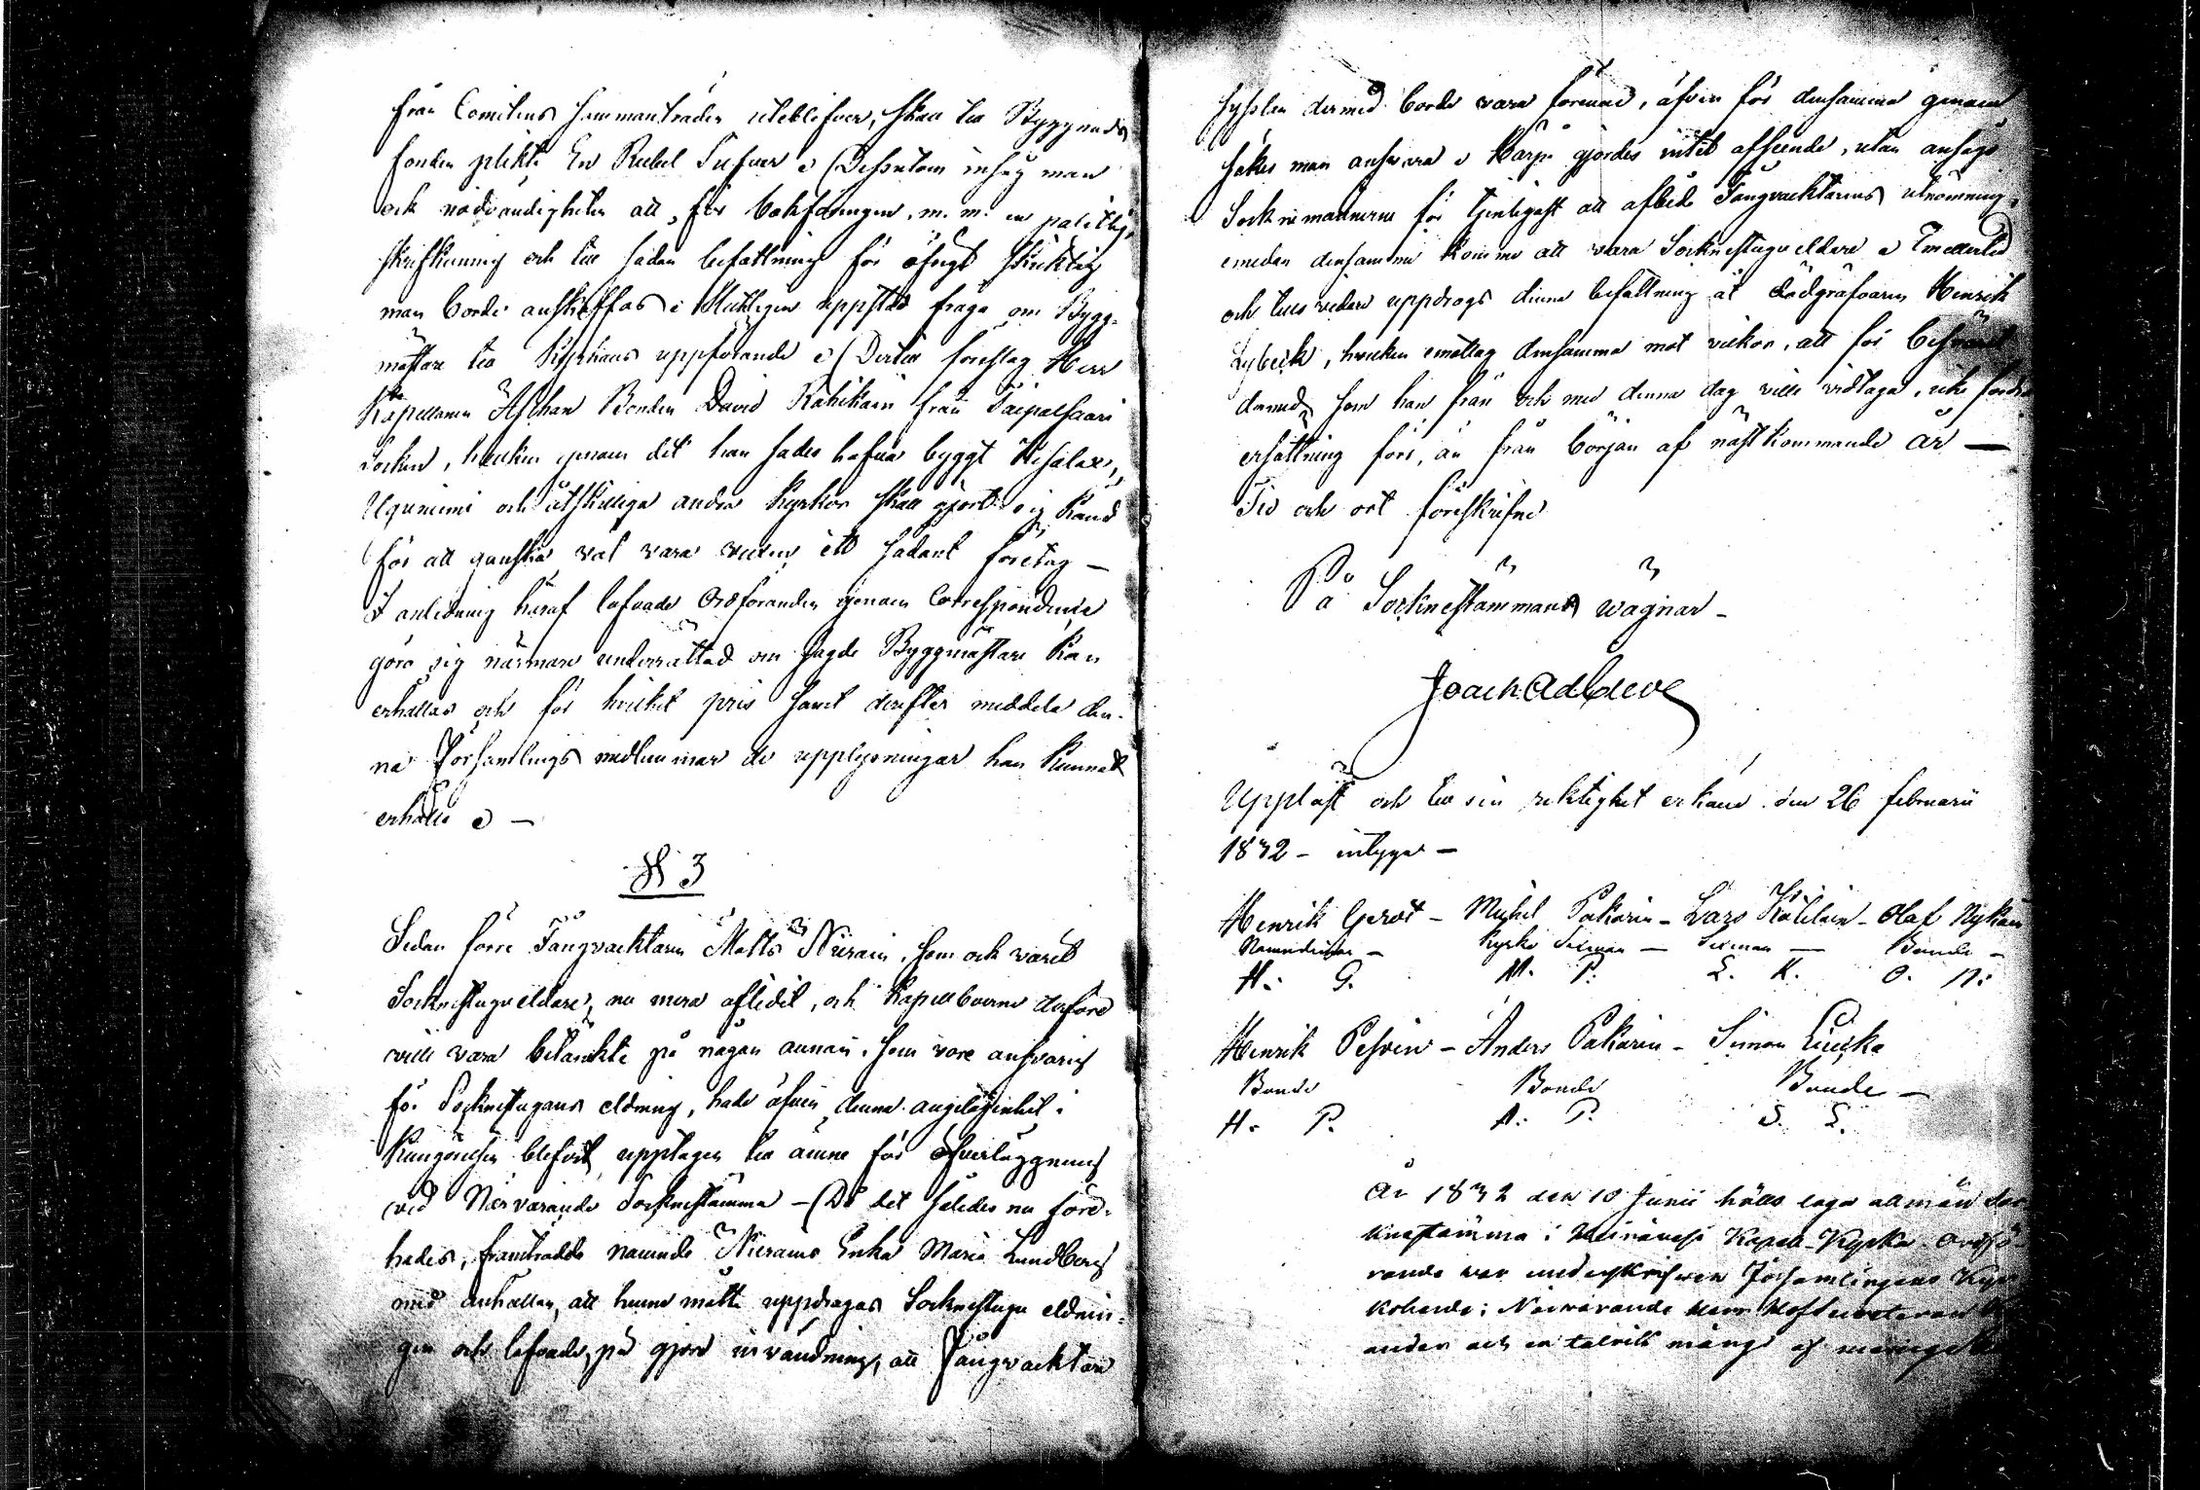 från Comitéens sammanträden uteblifver, skall till Byggnads
fonden plikta En Rubel Silfver. Dessutom insåg man
och nödvändigheten att, för bokföringen, m. m. en pålitlig,
skrifkunnig och till sådan befattning för öfrigt skicklig
man borde anskaffas. Slutligen uppstod fråga om Bygg-
mästare till Kyrkans uppförande. Dertill föreslog Herr
Kapellanen Aschan Bonden David Rahikain från Taipalsaari
Socken, hvilken genom det han sades hafva byggt Kesalax,
Uguniemi och åtskilliga andra Kyrkor skall gjort sig känd
för att ganska väl vara vuxen ett sådant företag –
I anledning häraf lofvade Ordföranden genom Correspondence
göra sig närmare underrättad om sagde Byggmästare kan
erhållas och för hvilket pris samt derefter meddela den-
na Församlings medlemmar de upplysningar han kunnat
erhålla –
§ 3
Sedan förre Fångvacktaren Matts Niirain, som och varit
Sockenstugu eldare, nu mera aflidit, och Kapellboerne derföre
ville vara betänkte på någon annan, som vore ansvarig
för Sockenstugans eldning, hade äfven denna angelägenhet i
Kungörelsen blifvit upptagen till ämne för öfverläggning
vid Närvarande Sockenstämma – Då det således nu före-
hades, framträdde nämnde Niirains Enka Maria Lundberg
med anhållan, att henne måtte uppdragas Sockenstugu eldnin-
gen och lofvade, på gjord invändning, att Fångvacktare
sysslan dermed borde vara förenad, äfven för densamma genom
säker man ansvara. Härpå gjordes intet afseende, utan ansågo
Socknemännerne för tjenligast att afbida Fångvacktarens utnämning,
emedan densamme komme att vara Sockenstugu eldare. Emedlertid
och tills vidare uppdrogs denna befattning åt Dödgräfvaren Henrik
Lybeck, hvilken emottog densamma mot vilkor, att för besväret
dermed, som han från och med denna dag ville vidtaga, icke fordra
ersättning förr, än från början af nästkommande år —
Tid och ort förеskrifne
På Sockenstämmans wägnar –
Joach Adldeve
Uppläst och till sin riktighet erkänd den 26 februarii
1832 – intyga –
Henrik Gerot – Michel Pakarin – Lars Kälilain – Olaf Nykän
Nämndeman – Kyrko Sexman — Sexman — Bonde –
H. G. M. P. L. K. O. N.
Henrik Pesoin – Anders Pakarin – Simon Liuska
Bonde Bonde Bonde –
H. P. A. P. S. L.
År 1832 den 10 Junii hölls laga allmän Soc
knestämma i Kapell-Kyrka. Ordfö-
rande war underskrefwen Församlingens Kyr
koherde; Närwarande Herr
andar och en talrik mängd af menige